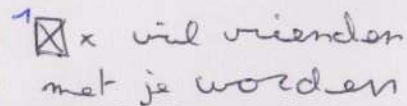 1 ☒ x wil vrienden
met je worden